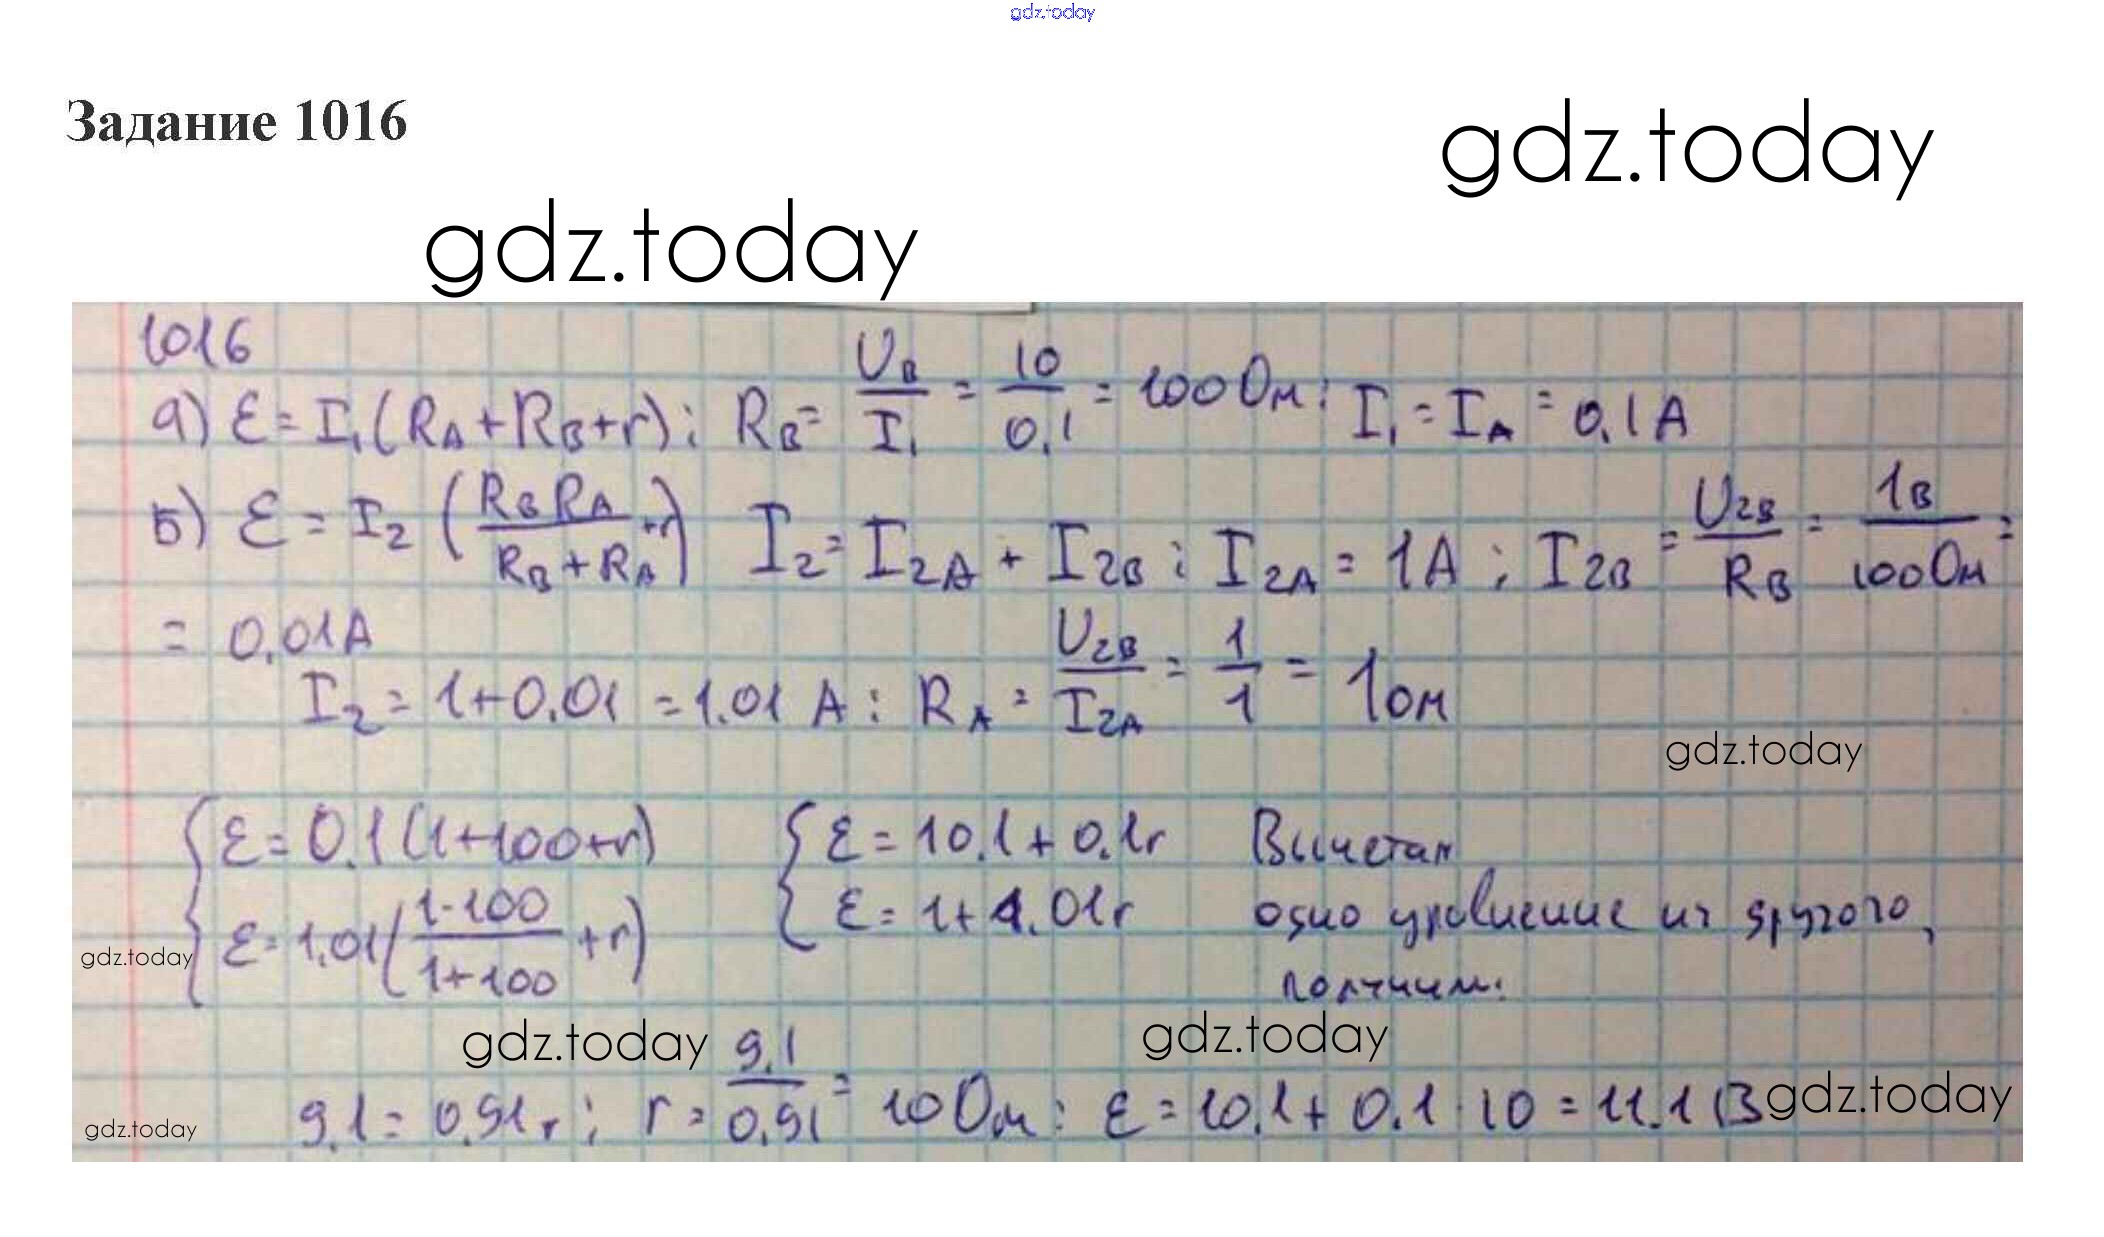 gdz.today
Задание 1016
gdz.today
gdz.today
1016
а) ε = I₁(R_A + R_B + r); R_B = U_B/I₁ = 10/0.1 = 100 Ом; I₁ = I_A = 0.1 А
б) ε = I₂ (R_B R_A/(R_B + R_A) + r) I₂ = I_2A + I_2B; I_2A = 1A; I_2B = U_2B/R_B = 1В/100 Ом =
= 0.01А
I₂ = 1+0.01 = 1.01 A; R_A = U_2B/I_2A = 1/1 = 1 Ом
gdz.today
{ ε = 0.1(1+100+r) { ε = 10.1 + 0.1r Вычетам
ε = 1.01(1·100/(1+100) + r) ε = 1 + 1.01r одно уравнение из другого,
gdz.today
получим:
gdz.today
gdz.today
9.1 = 0.91r; r = 9.1/0.91 = 10 Ом; ε = 10.1 + 0.1 · 10 = 11.1 В
gdz.today
gdz.today